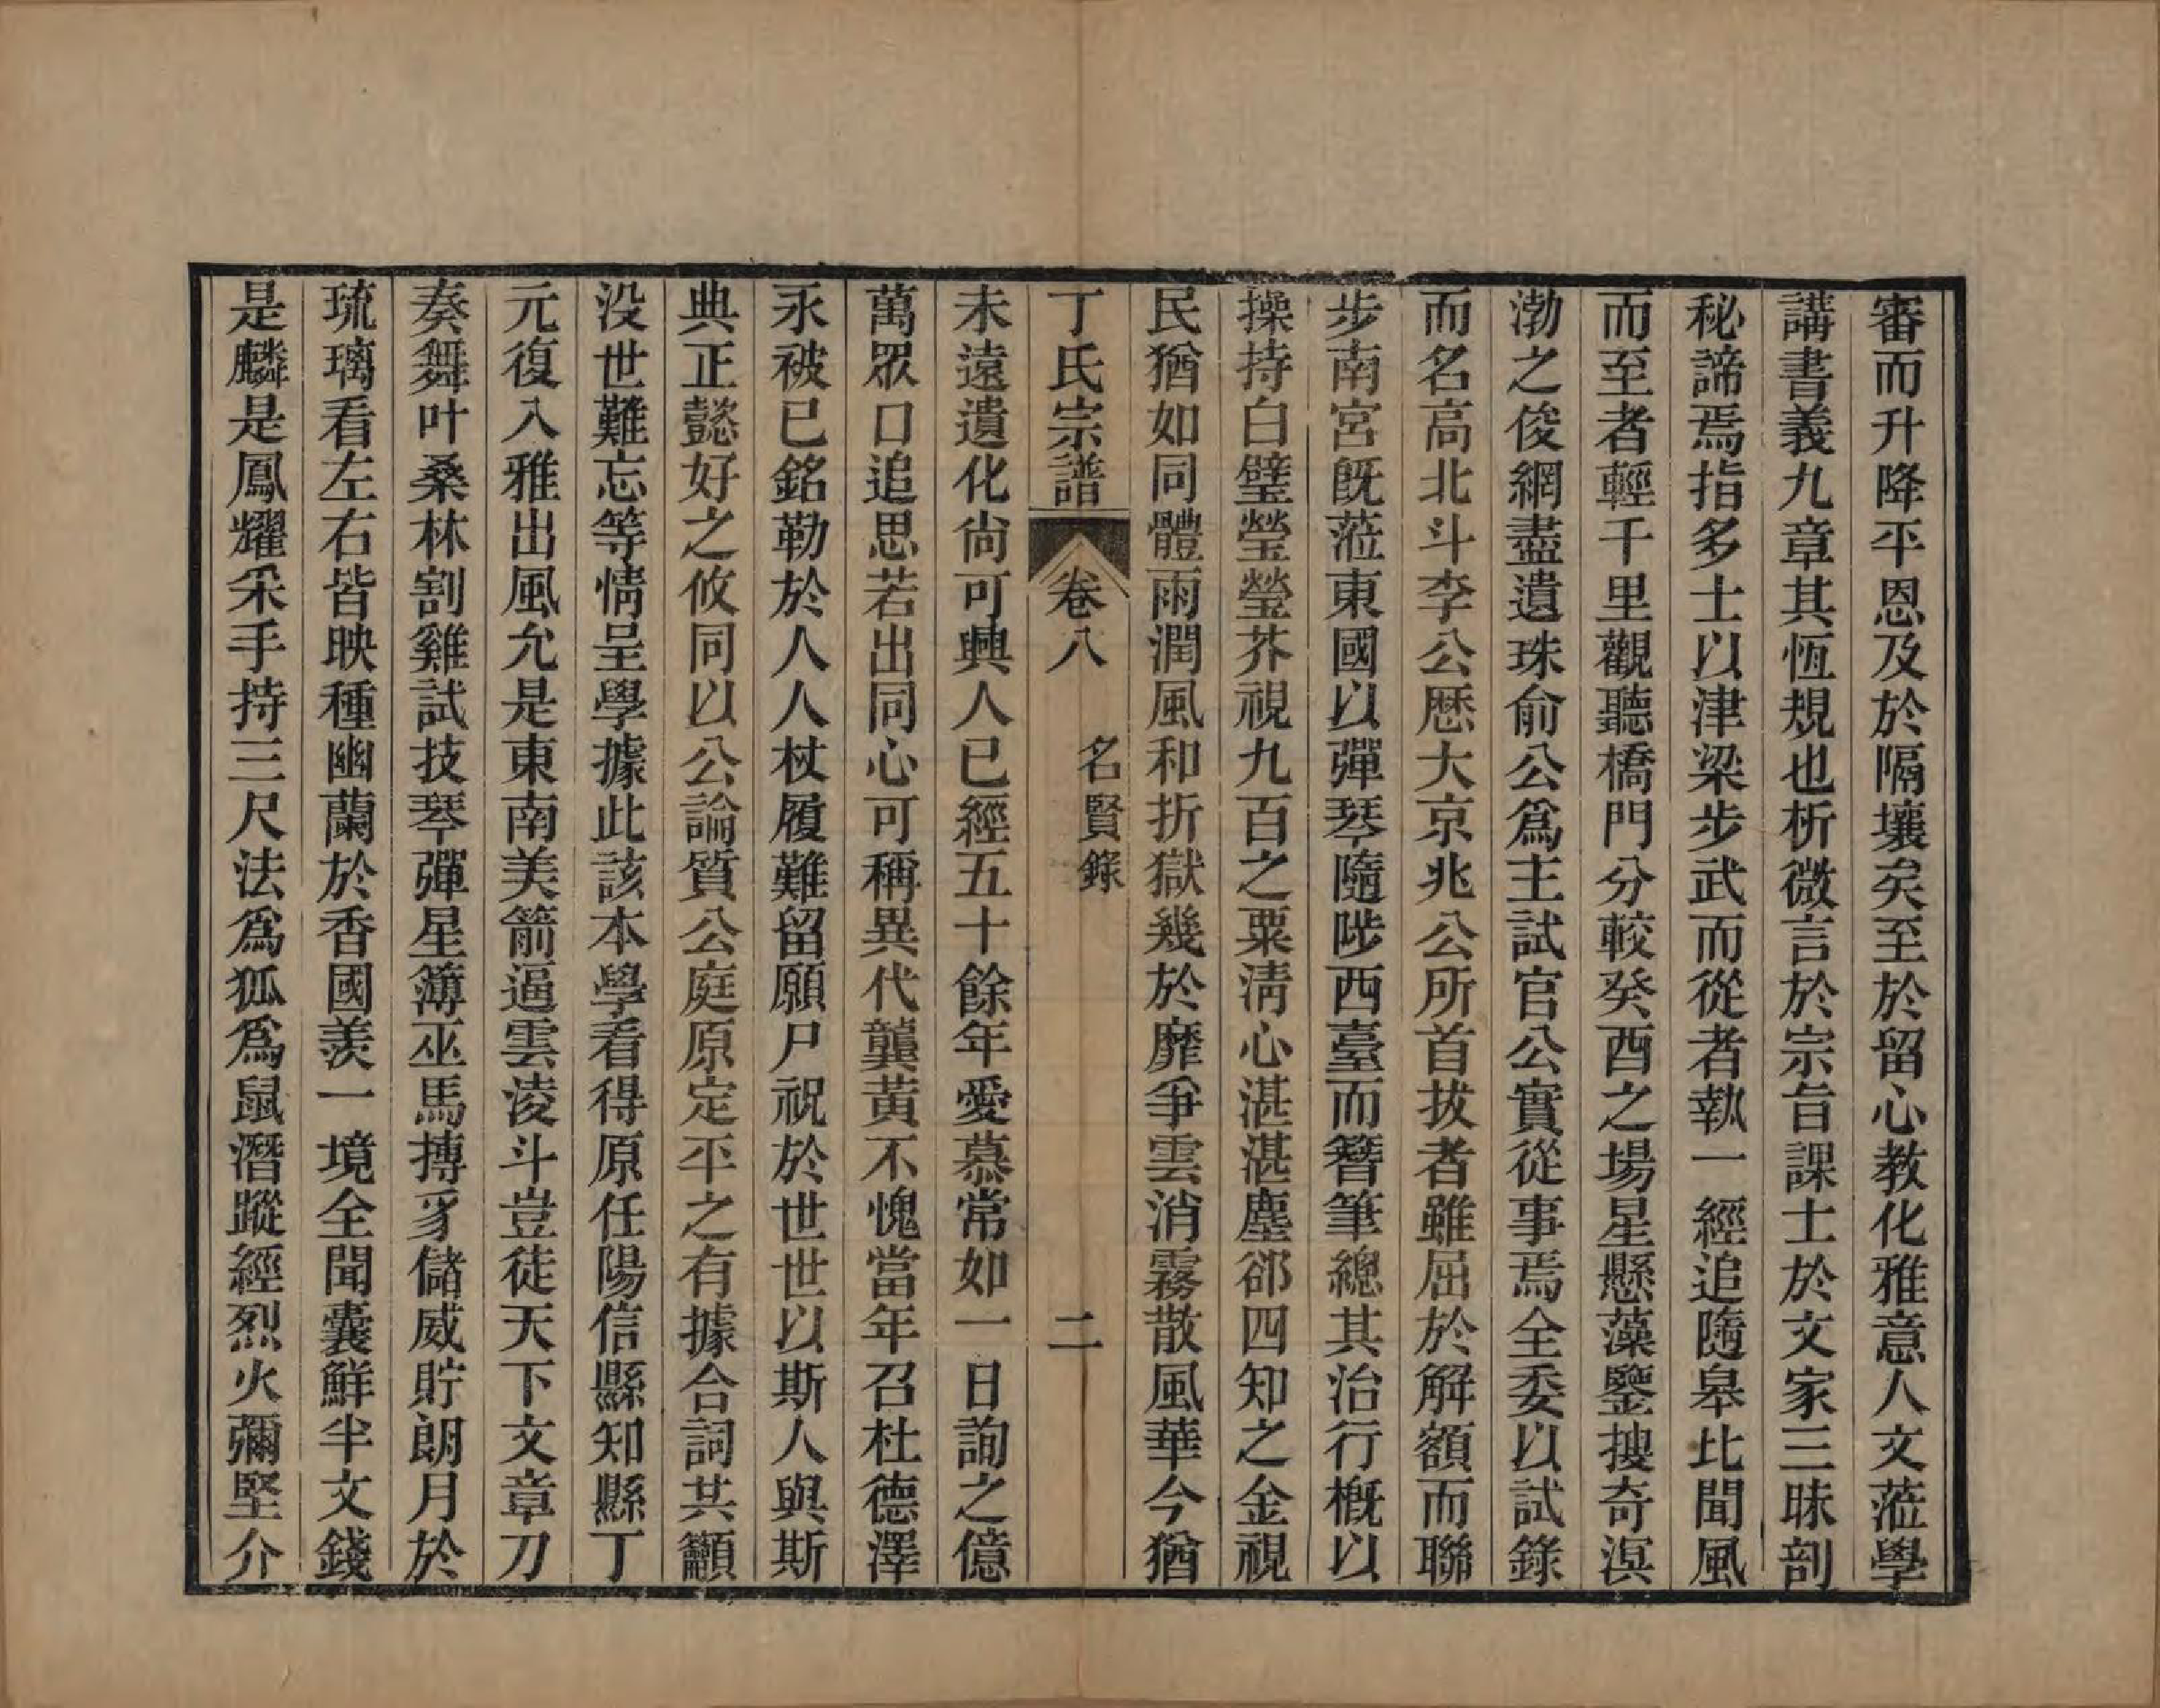 審而升降平恩及於隔壤矣至於留心教化雅意人文蒞學
講書義九章其恆規也析微言於宗旨課士於文家三昧剖
秘諦焉指多士以津梁步武而從者執一經追隨皋比聞風
而至者輕千里觀聽橋門分較癸酉之場星懸藻鑒搜奇溟
渤之俊網盡遺珠俞公爲主試官公實從事焉全委以試錄
而名高北斗李公歷大京兆公所首拔者雖屈於解額而聯
步南宮旣蒞東國以彈琴隨陟西臺而簪筆總其治行槪以
操持白璧瑩瑩芥視九百之粟淸心湛湛塵郤四知之金視
民猶如同體雨潤風和折獄幾於靡爭雲消霧散風華今猶
丁氏宗譜 卷八 名賢錄 二
未遠遺化尙可興人已經五十餘年愛慕常如一日詢之億
萬眾口追思若出同心可稱異代龔黃不愧當年召杜德澤
永被已銘勒於人人杖履難留願尸祝於世世以斯人與斯
典正懿好之攸同以公論質公庭原定平之有據合詞共籲
没世難忘等情呈學據此該本學看得原任陽信縣知縣丁
元復入雅出風允是東南美箭逼雲凌斗豈徒天下文章刀
奏舞叶桑林割雞試技琴彈星簿巫馬摶豸儲威貯朗月於
琉璃看左右皆映種幽蘭於香國羨一境全聞囊鮮半文錢
是麟是鳳耀采手持三尺法爲狐爲鼠潛蹤經烈火彌堅介